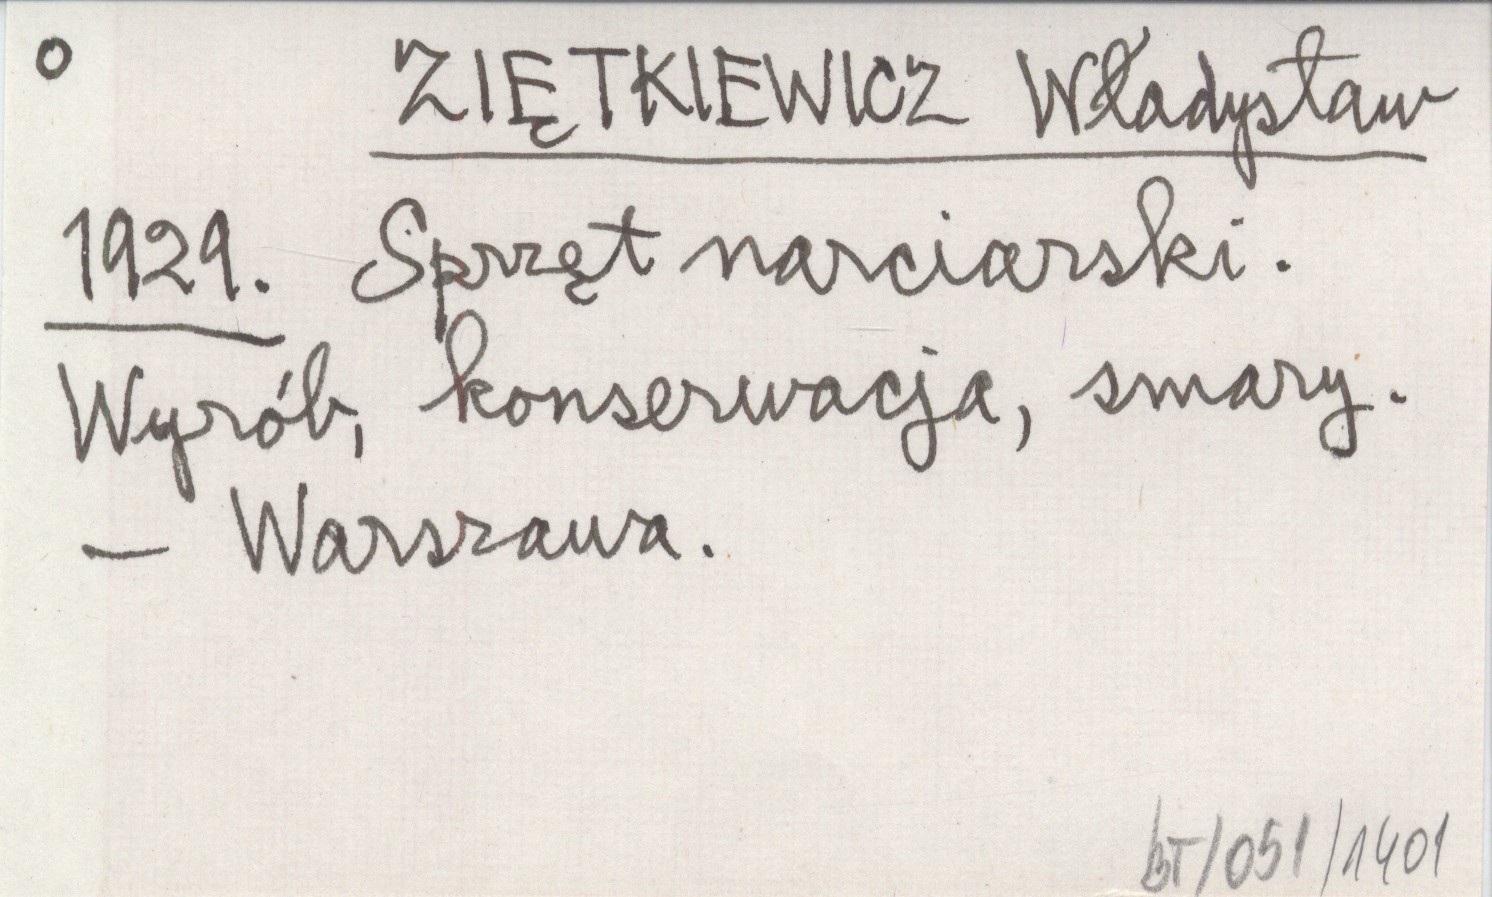 o ZIĘTKIEWICZ Władysław
1929. Sprzęt narciarski.
Wyrób, konserwacja, smary.
— Warszawa.
BT/051/1401